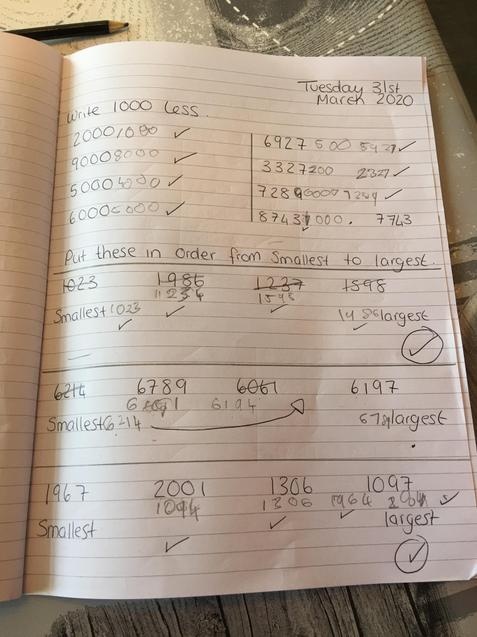 Tuesday 31st
March 2020
Write 1000 less.
2000 1000 ✓
9000 8000 ✓
5000 4000 ✓
6000 5000 ✓
6927 5927 ✓
3327 2327 ✓
7289 ✓
8743 7743
Put these in order from Smallest to largest.
1023 1986 1237 1598
1234 1598
Smallest 1023 largest
✓ ✓ ✓ ✓
✓
6214 6789 6061 6197
6194
Smallest 6214 largest
1967 2001 1306 1097
1094 1306 1964 ✓
Smallest ✓ ✓ largest
✓ ✓